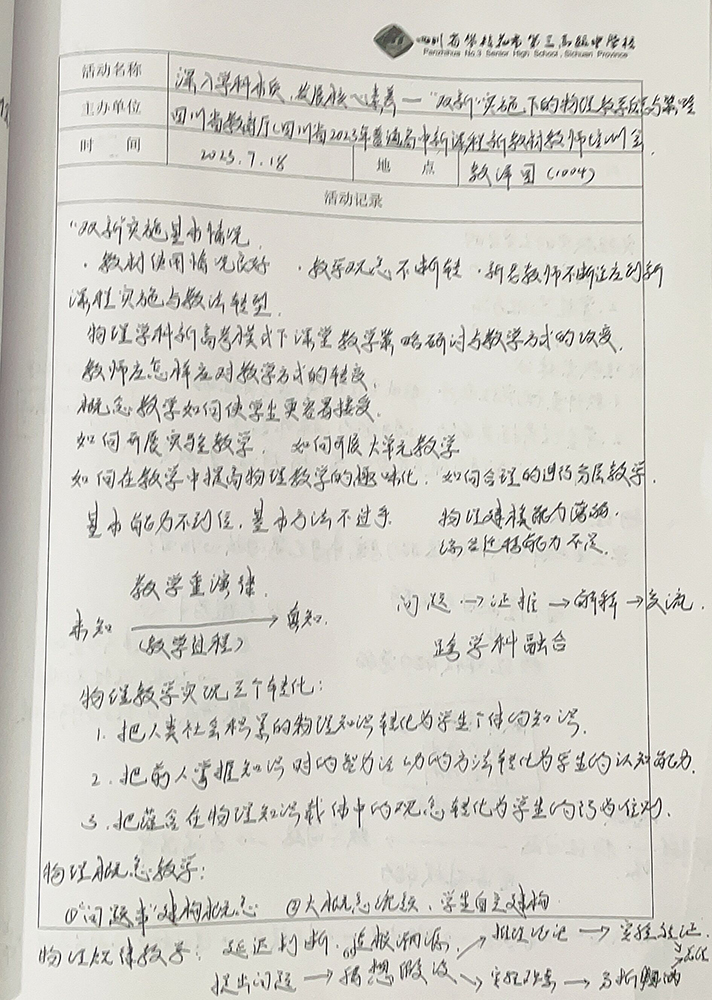 四川省攀枝花市第三高级中学校
Panzhihua No.3 Senior High School, Sichuan Province
活动名称 深入学科本质,发展核心素养—"双新"实施下的物理教学与策略
主办单位 四川省教育厅(四川省2023年普通高中新课程新教材教师培训会
时 间 2023.7.18 地 点 教泽园(1004)
活动记录
"双新"实施基本情况
·教材使用情况良好 ·教学观念不断转 ·新老教师不断适应到新
课程实施与教法转型.
物理学科新高考模式下课堂教学策略研讨与教学方式的改变.
教师应怎样应对教学方式的转变.
概念教学如何使学生更容易接受.
如何开展实验教学. 如何开展大单元教学
如何在教学中提高物理教学的趣味化. 如何合理的进行分层教学.
基本能力不到位,基本方法不过手. 物理建模能力薄弱.
综合迁移能力不足.
教学重演律.
未知 → 真知.
(教学过程)
问题→证据→解释→交流.
跨学科融合
物理教学实现三个转化:
1. 把人类社会积累的物理知识转化为学生个体的知识.
2. 把前人掌握知识时的智力活动的方法转化为学生的认知能力.
3. 把蕴含在物理知识载体中的观念转化为学生的行为准则.
物理概念教学:
①"问题串"建构概念 ②大概念统领、学生自主建构
物理规律教学: 延迟判断.追根溯源. 推理论证→实验验证.
提出问题→猜想假设 实验探索→分析归纳 结论